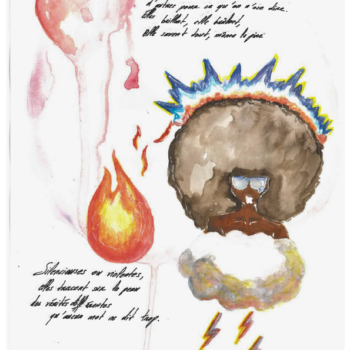 d'autres pour ce qu'on n'ose dire.
Elles brillent, elles brûlent,
elles savent tout, même le pire
Silencieuses ou violentes,
elles tracent sur la peau
des vérités
qu'aucun mot ne dit trop.